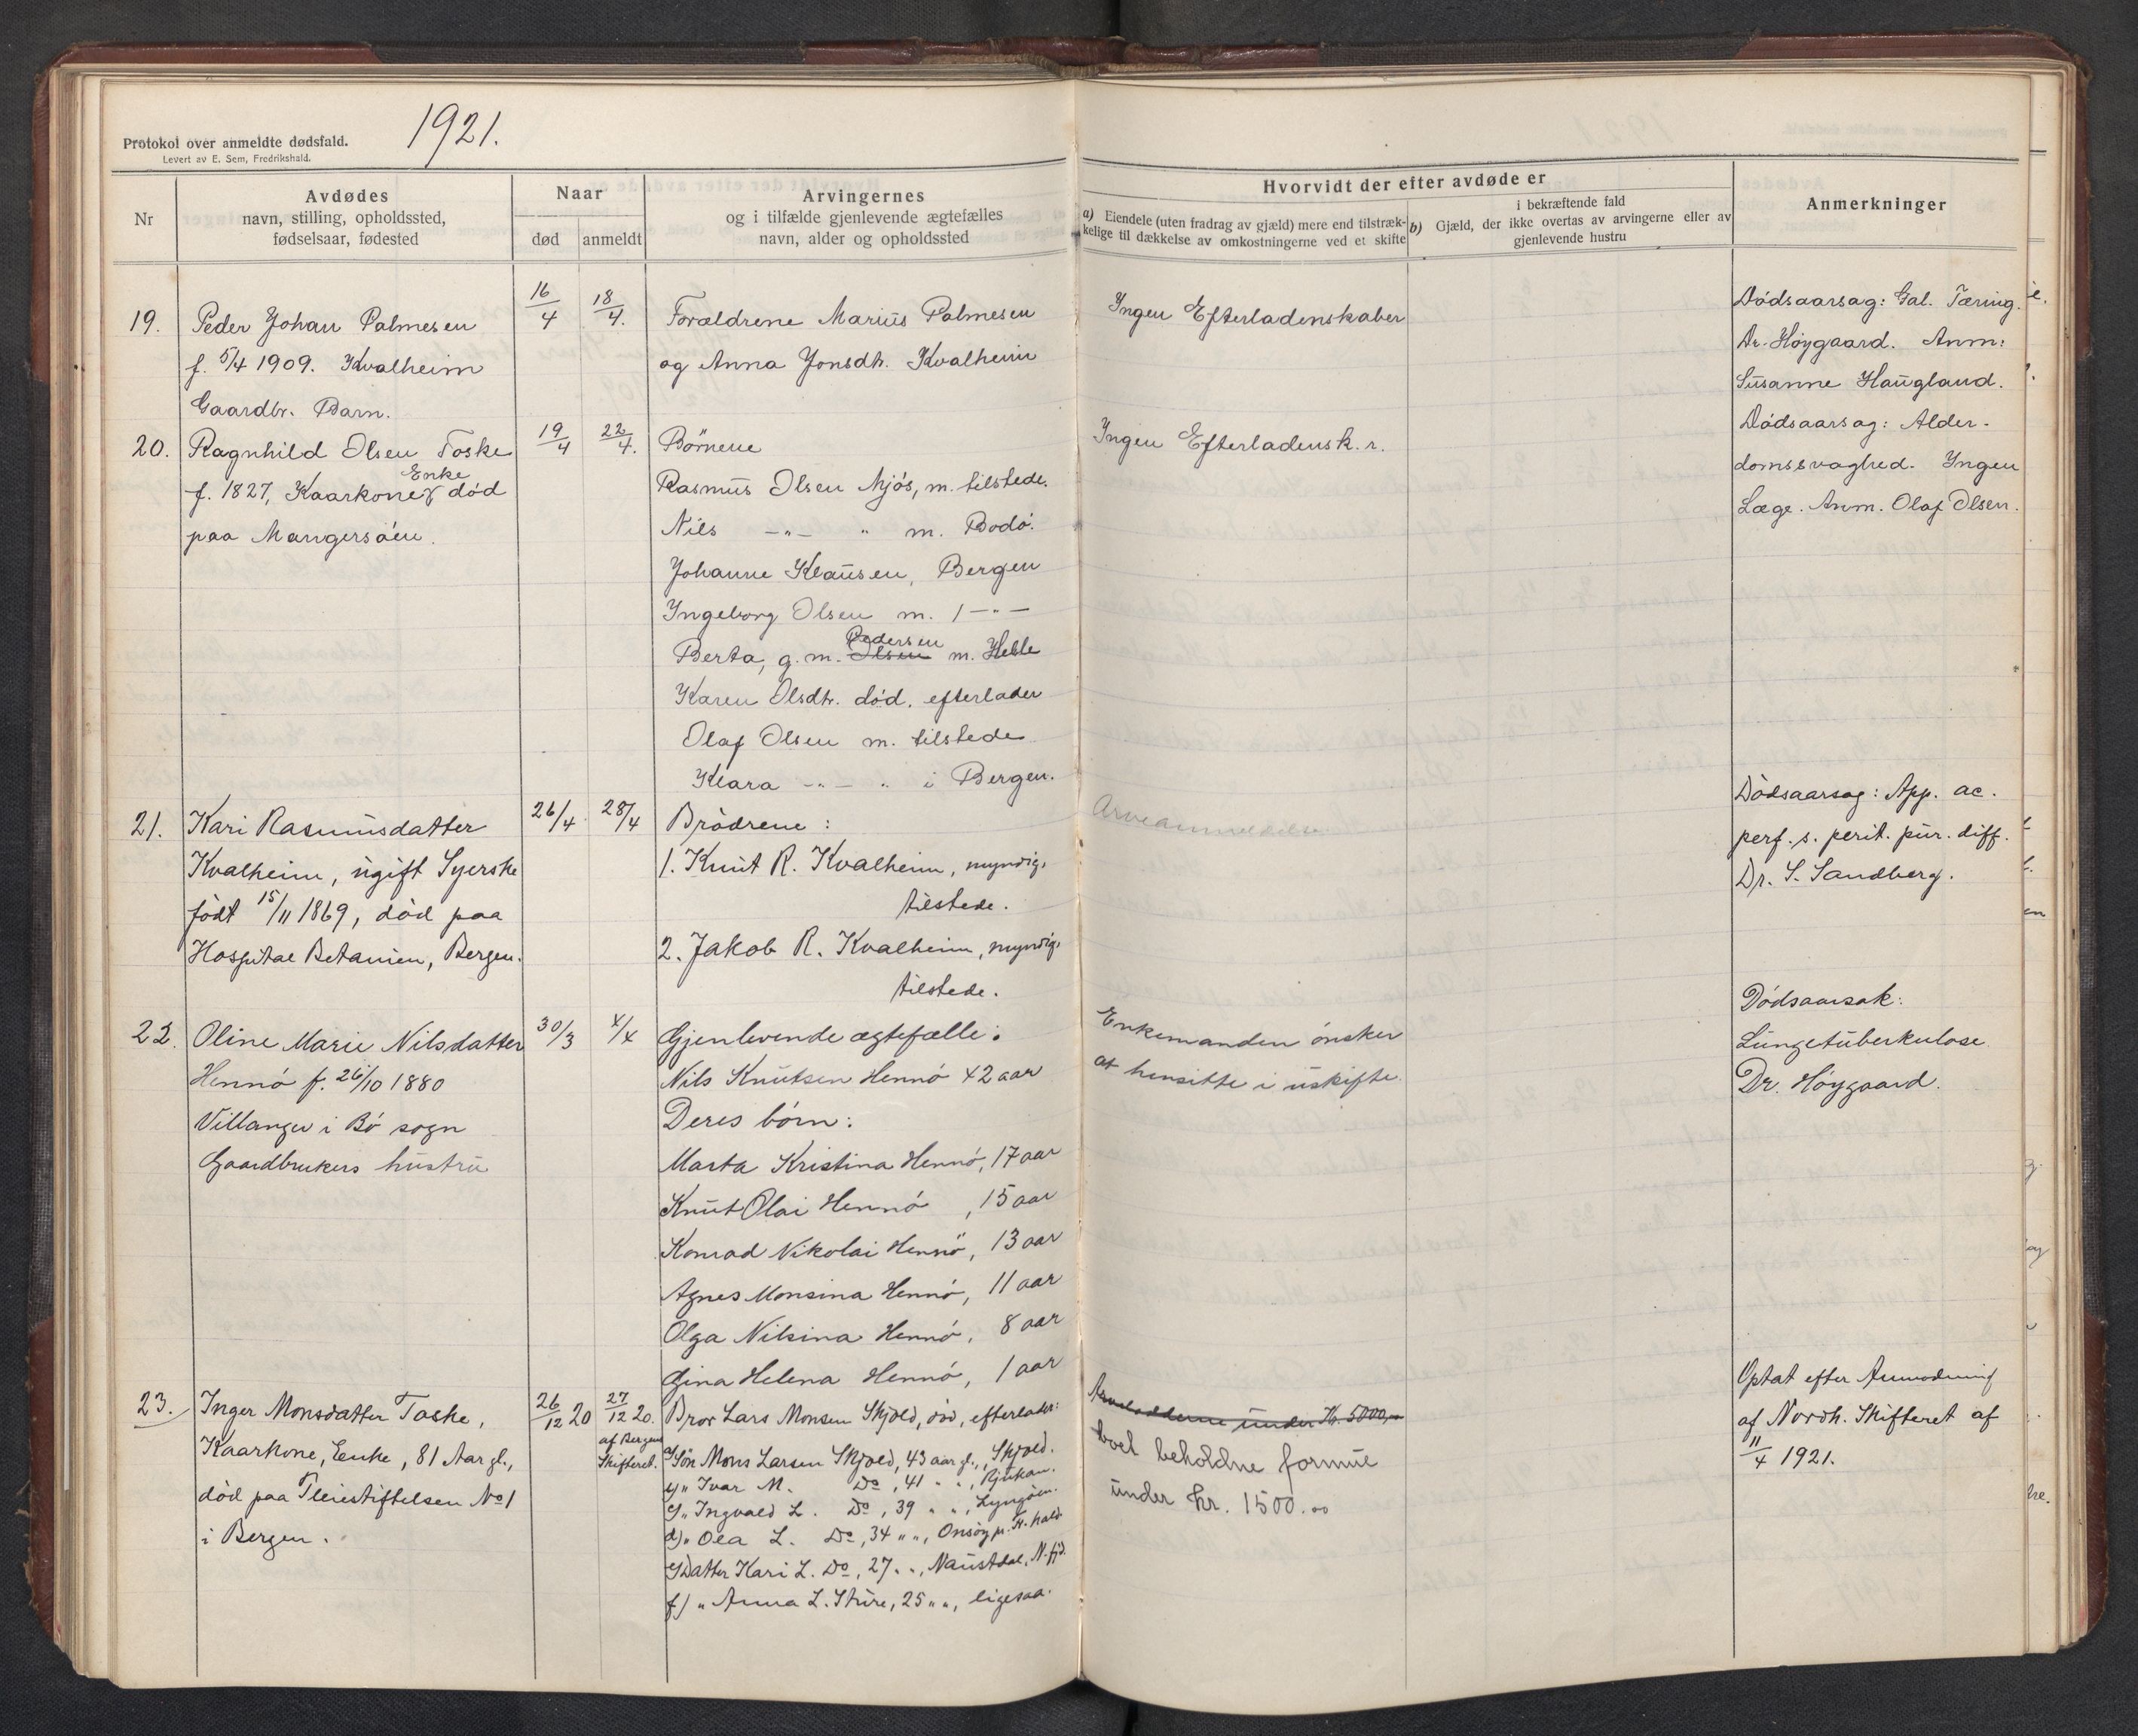 1921.
Protokol over anmeldte dødsfald.
Levert av E. Sem, Fredrikshald.
Nr
Avdødes
navn, stilling, opholdssted,
fødselsaar, fødested
Naar
død
anmeldt
Arvingernes
og i tilfælde gjenlevende ægtefælles
navn, alder og opholdssted
Hvorvidt der efter avdøde er
a) Eiendele (uten fradrag av gjæld) mere end tilstræk-
kelige til dækkelse av omkostningerne ved et skifte
i bekræftende fald
b) Gjæld, der ikke overtas av arvingerne eller av
gjenlevende hustru
Anmerkninger
19.
Peder Johan Palmesen
f. 5/4 1909. Kvalheim
Gaardbr. Barn.
16/4
18/4.
Forældrene Marius Palmesen
og Anna Jonsdtr. Kvalheim
Ingen Efterladenskaber
Dödsaarsag: Gal. Tæring.
Dr. Høygaard. Anm:
Susanne Haugland.
20.
Ragnhild Olsen Toske
Enke
f. 1827, Kaarkone, død
paa Mangersöen.
19/4
22/4.
Börnene
Rasmus Olsen Mjös, m. tilstede.
Nils -"- " m. Bodö.
Johanne Klausen, Bergen
Ingeborg Olsen m. / -"-
Pedersen
Berta, g. m. Olsen m. Helle
Karen Olsdtr. död. efterlader
Olaf Olsen m. tilstede
Klara -"- " i Bergen.
Ingen Efterladensk.r.
Dödsaarsag: Alder-
domssvaghed. Ingen
Læge. Anm. Olaf Olsen.
21.
Kari Rasmusdatter
Kvalheim, ugift Syerske
født 15/11 1869, død paa
Hospital Betanien, Bergen.
26/4
28/4
Brödrene:
1. Knut R. Kvalheim, myndig,
tilstede.
2. Jakob R. Kvalheim, myndig,
tilstede.
Arveanmeldelse
Dødsaarsag: App. ac.
perf. s. perit. pur. diff.
Dr. S. Sandberg.
22.
Oline Marie Nilsdatter
Hennö f. 26/10 1880
Villanger i Bö sogn
Gaardbrukers hustru
30/3
4/4
Gjenlevende ægtefælle:
Nils Knutsen Hennö 42 aar
Deres börn:
Marta Kristina Hennö, 17 aar
Knut Olai Hennö, 15 aar
Konrad Nikolai Hennö, 13 aar
Agnes Monsina Hennö, 11 aar
Olga Nilsina Hennö, 8 aar
Gina Helena Hennö, 1 aar
Enkemanden önsker
at hensitte i uskifte.
Dödsaarsak:
Lungetuberkulose
Dr. Höygaard.
23.
Inger Monsdatter Toske,
Kaarkone, Enke, 81 Aar gl.,
död paa Pleiestiftelsen No 1
i Bergen.
26/12 20
27/12 20.
af Bergens
Skifteret.
Bror Lars Monsen Skjold, död, efterlader:
a) Sön Mons Larsen Skjold, 43 aar gl., Skjold.
b) " Ivar M. Do, 41 " ", Rjukan.
c) " Ingvald L. Do, 39 " ", Lyngöen.
d) " Ola L. Do, 34 " ", Onsöy p. Fr. hald.
e) Datter Kari L. Do, 27 " ", Naustdal, N. fjd.
f) " Anna L. Sture, 25 " ", ligesaa.
Arvelodderne under Kr. 5000,-
boet beholdne formue
under kr. 1500.00
Optat efter Anmodning
af Nordh. Skifteret af
11/4 1921.